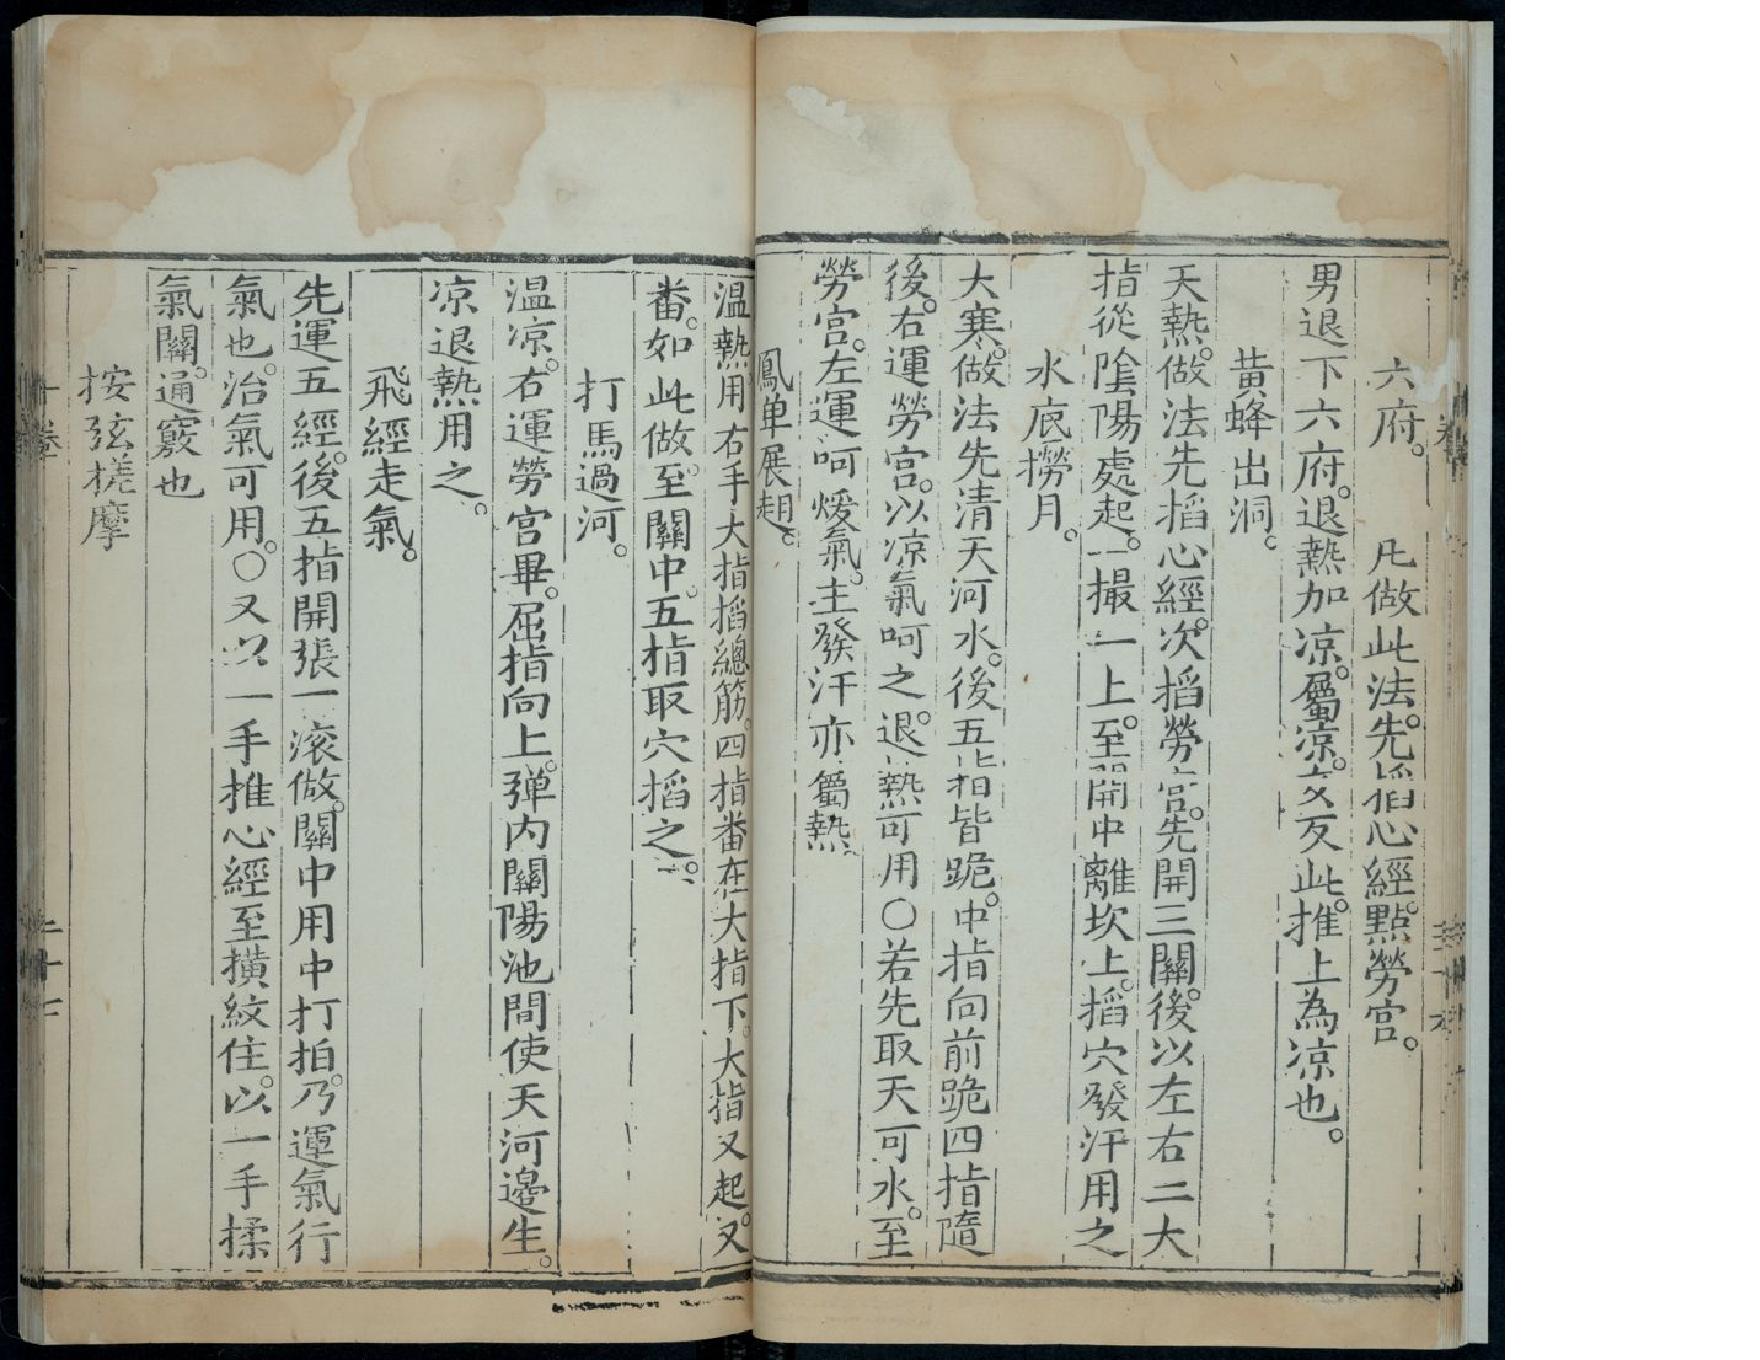 六府。　凡做此法。先掐心經。點勞宮。
男退下六府。退熱加凉。屬凉。女反此。推上為凉也。
黄蜂出洞。
天熱。做法先掐心經。次掐勞宮。先開三關。後以左右二大
指從陰陽處起。一撮一上。至關中離坎上。掐穴發汗用之
水底撈月。
大寒。做法先清天河水。後五指皆跪。中指向前跪四指隨
後。右運勞宮。以凉氣呵之。退熱可用〇若先取天可水。至
勞宮。左運呵煖氣。主發汗亦屬熱
鳳單展翅。
温熱。用右手大指掐總筋。四指番在大指下。大指又起。又
番。如此做。至關中。五指取穴掐之。
打馬過河。
温凉。右運勞宮畢。屈指向上。弹内關陽池間使天河邉生。
凉退熱用之。
飛經走氣。
先運五經。後五指開張一滚做。關中用中打拍。乃運氣行
氣也。治氣可用。〇又以一手推心經至横紋住。以一手揉
氣關。通竅也
按弦搓摩
十卷
二十七